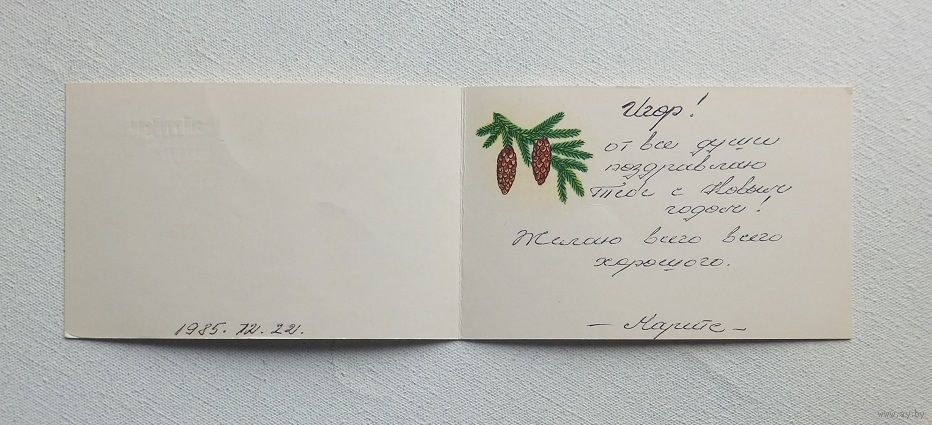 1985. 12. 22.
Игор!
от все души
поздравлаю
Тебе с Новым
годом!
Желаю всего всего
хорошого.
– Марите –
www.ay.by